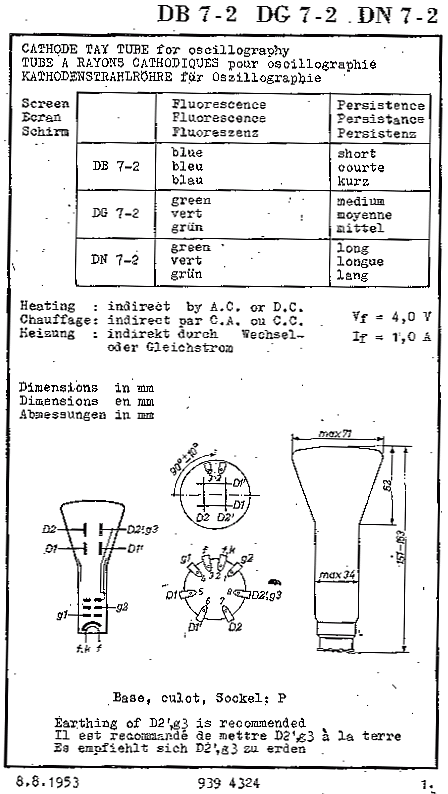 DB 7-2 DG 7-2 DN 7-2
CATHODE TAY TUBE for oscillography
TUBE A RAYONS CATHODIQUES pour oscillographie
KATHODENSTRAHLRÖHRE für Oszillographie
Screen Fluorescence Persistence
Ecran Fluorescence Persistance
Schirm Fluoreszenz Persistenz
blue short
DB 7-2 bleu courte
blau kurz
green medium
DG 7-2 vert moyenne
grün mittel
green long
DN 7-2 vert longue
grün lang
Heating : indirect by A.C. or D.C.
Chauffage: indirect par C.A. ou C.C.
Heizung : indirekt durch Wechsel-
oder Gleichstrom
Vf = 4,0 V
If = 1,0 A
Dimensions in mm
Dimensions en mm
Abmessungen in mm
D2 D2',g3
D1 D1'
g1 g2
f,k f
90°±10°
3 2
D1'
D1
D2 D2'
f f,k
g1 g2
4 3 2 1
D1 5 8 D2',g3
6 7
D1' D2
max 71
62
151-163
max 34
Base, culot, Sockel: P
Earthing of D2',g3 is recommended
Il est recommandé de mettre D2',g3 à la terre
Es empfiehlt sich D2',g3 zu erden
8.8.1953 939 4324 1.